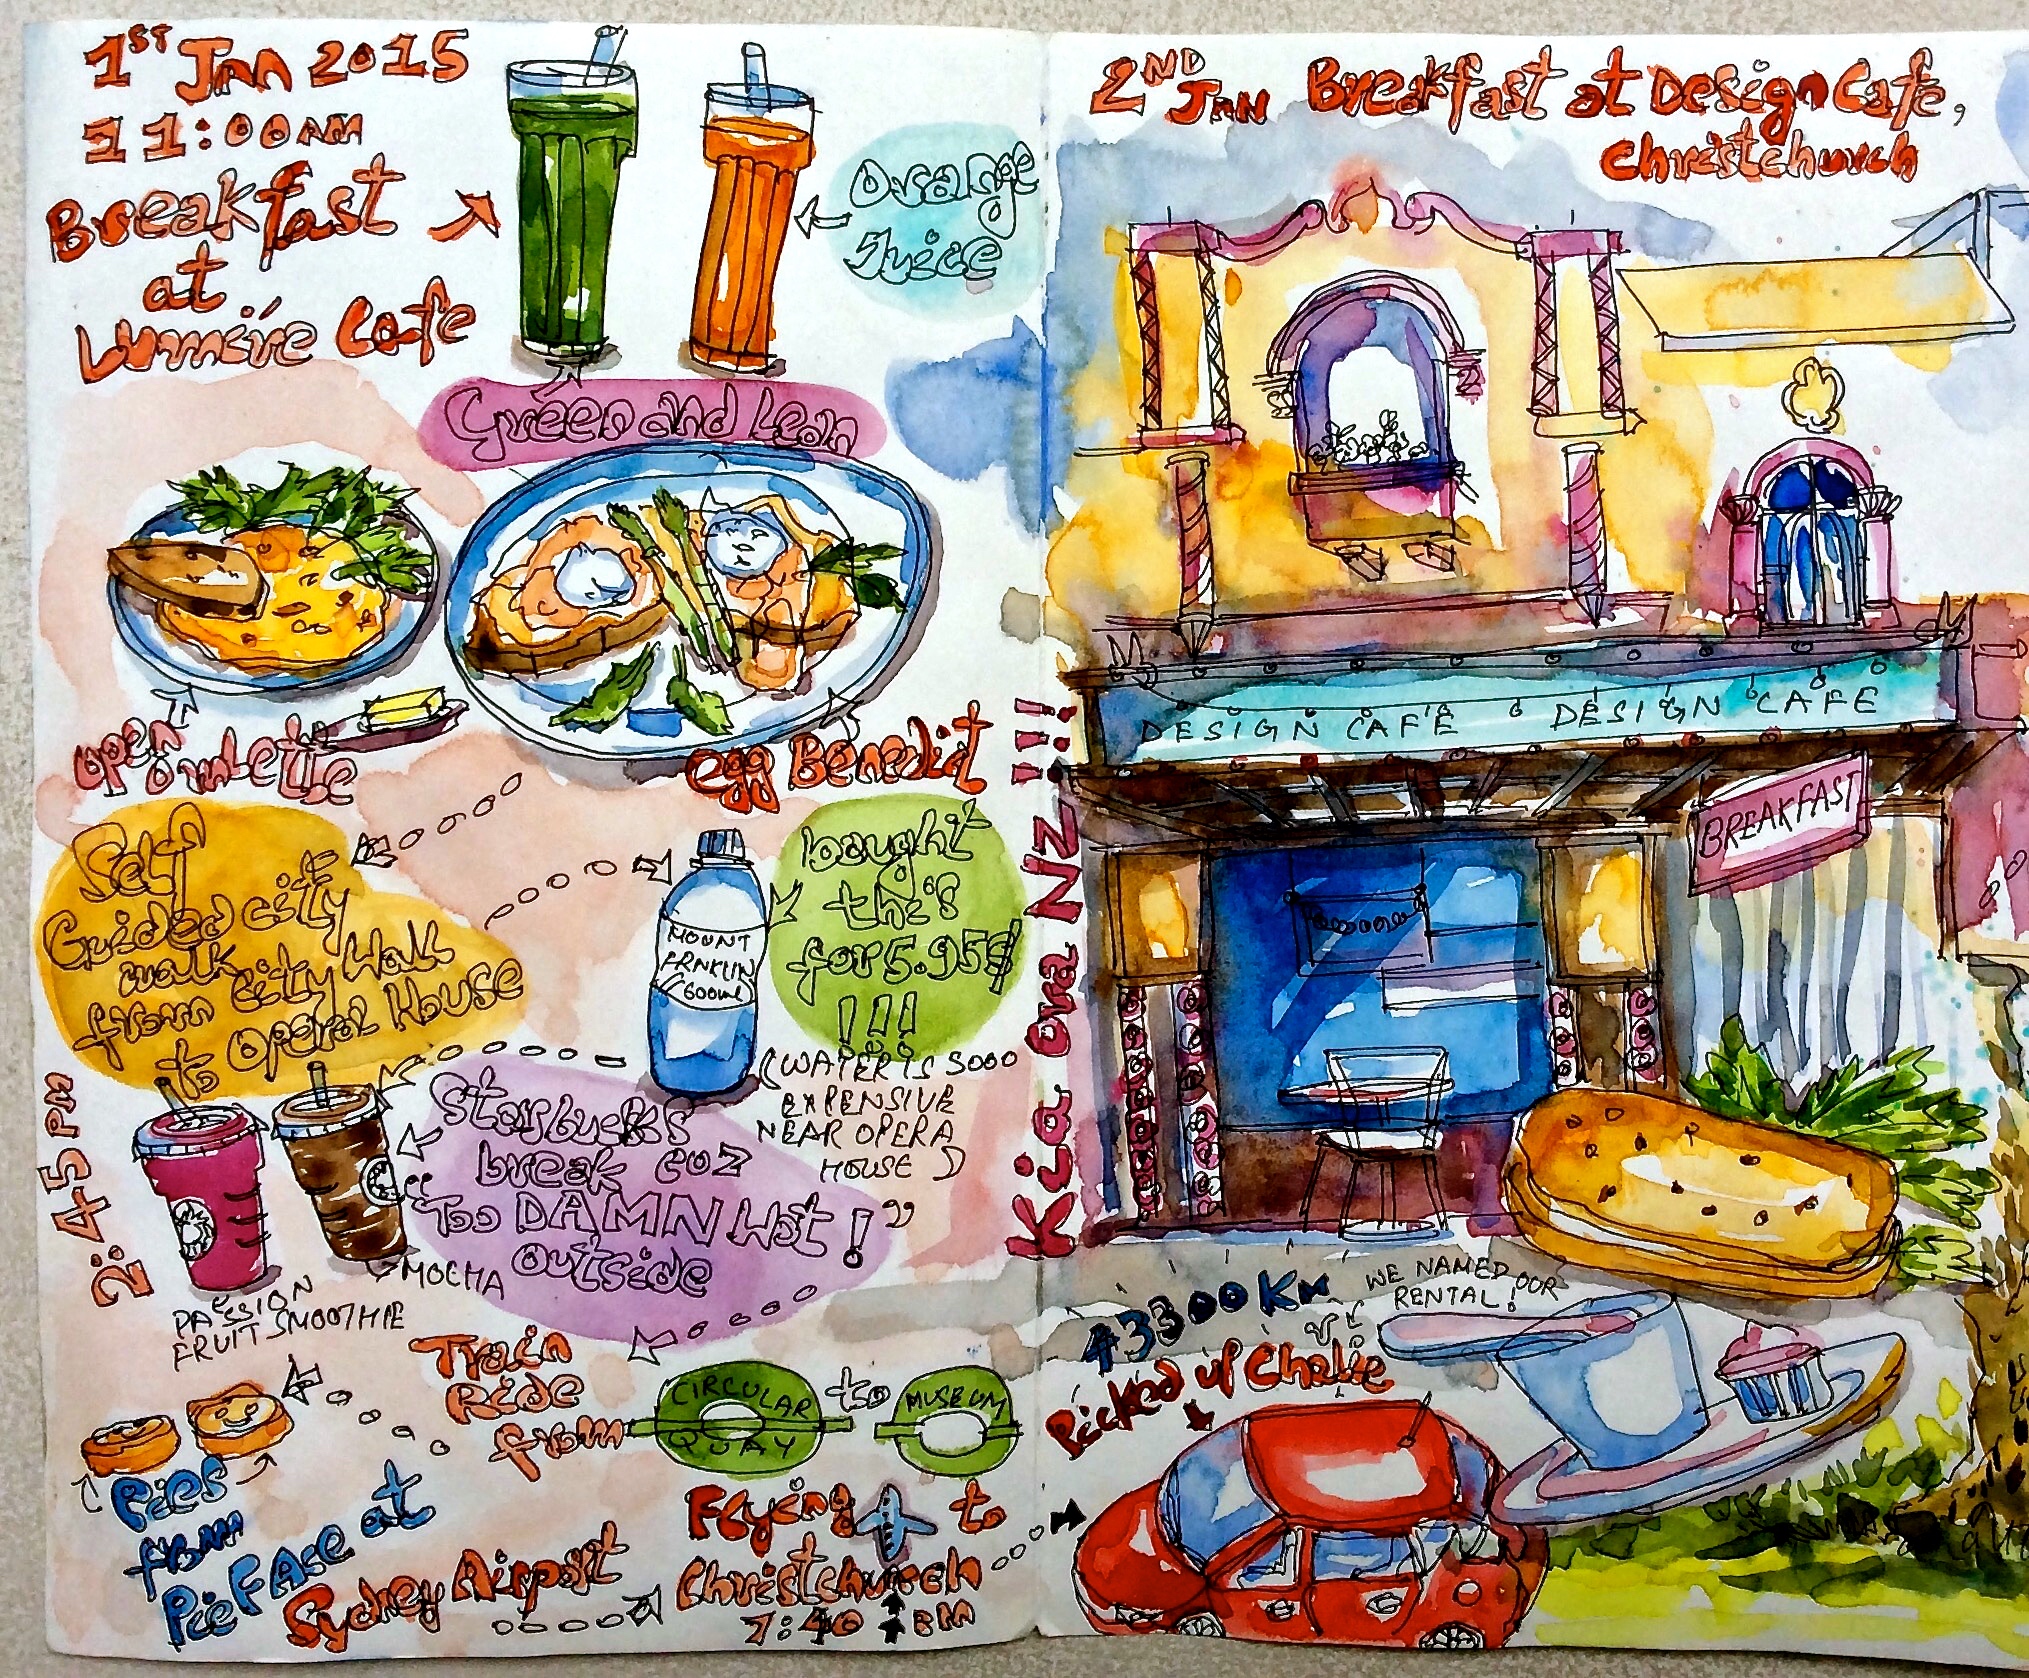 1ST Jan 2015
11:00AM
Breakfast
at
Lumiére Cafe
Orange
Juice
Green and Lean
Open
Omlette
egg Benedict
Self
Guided city
walk
from City Hall
to Opera House
MOUNT
FRNKLIN
600ml
bought
this
for 5.95$
!!!
(WATER IS SOOO
EXPENSIVE
NEAR OPERA
HOUSE)
2:45 PM
Starbucks
break coz
"Too DAMN Hot!"
outside
PASSION
FRUIT SMOOTHIE
MOCHA
Train
Ride
from
CIRCULAR
QUAY
to
MUSEUM
Pies
from
Pie FAce at
Sydney Airport
Flying to
Christchurch
7:40 PM
Kia Ora NZ!!!
2ND Jan Breakfast at Design Cafe,
Christchurch
DESIGN CAFE DESIGN CAFE
BREAKFAST
#3300 Km
WE NAMED OUR
RENTAL!
Picked up